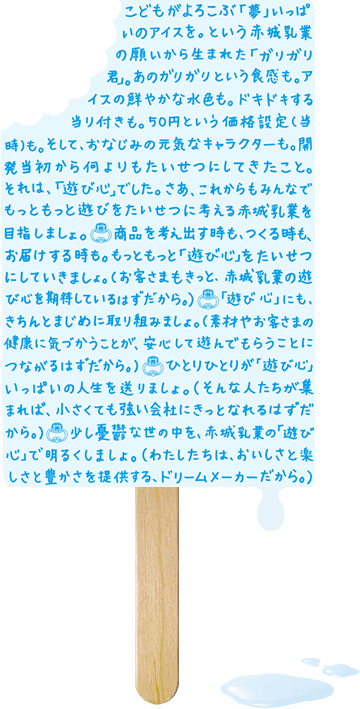 こどもがよろこぶ「夢」いっぱ
いのアイスを。という赤城乳業
の願いから生まれた「ガリガリ
君」。あのガリガリという食感も。ア
イスの鮮やかな水色も。ドキドキする
当り付きも。50円という価格設定(当
時)も。そして、おなじみの元気なキャラクターも。開
発当初から何よりもたいせつにしてきたこと。
それは、「遊び心」でした。さあ、これからもみんなで
もっともっと遊びをたいせつに考える赤城乳業を
目指しましょ。商品を考え出す時も、つくる時も、
お届けする時も。もっともっと「遊び心」をたいせつ
にしていきましょ。(お客さまもきっと、赤城乳業の遊
び心を期待しているはずだから。)「遊び心」にも、
きちんとまじめに取り組みましょ。(素材やお客さまの
健康に気づかうことが、安心して遊んでもらうことに
つながるはずだから。)ひとりひとりが「遊び心」
いっぱいの人生を送りましょ。(そんな人たちが集
まれば、小さくても強い会社にきっとなれるはずだ
から。)少し憂鬱な世の中を、赤城乳業の「遊び
心」で明るくしましょ。(わたしたちは、おいしさと楽
しさと豊かさを提供する、ドリームメーカーだから。)